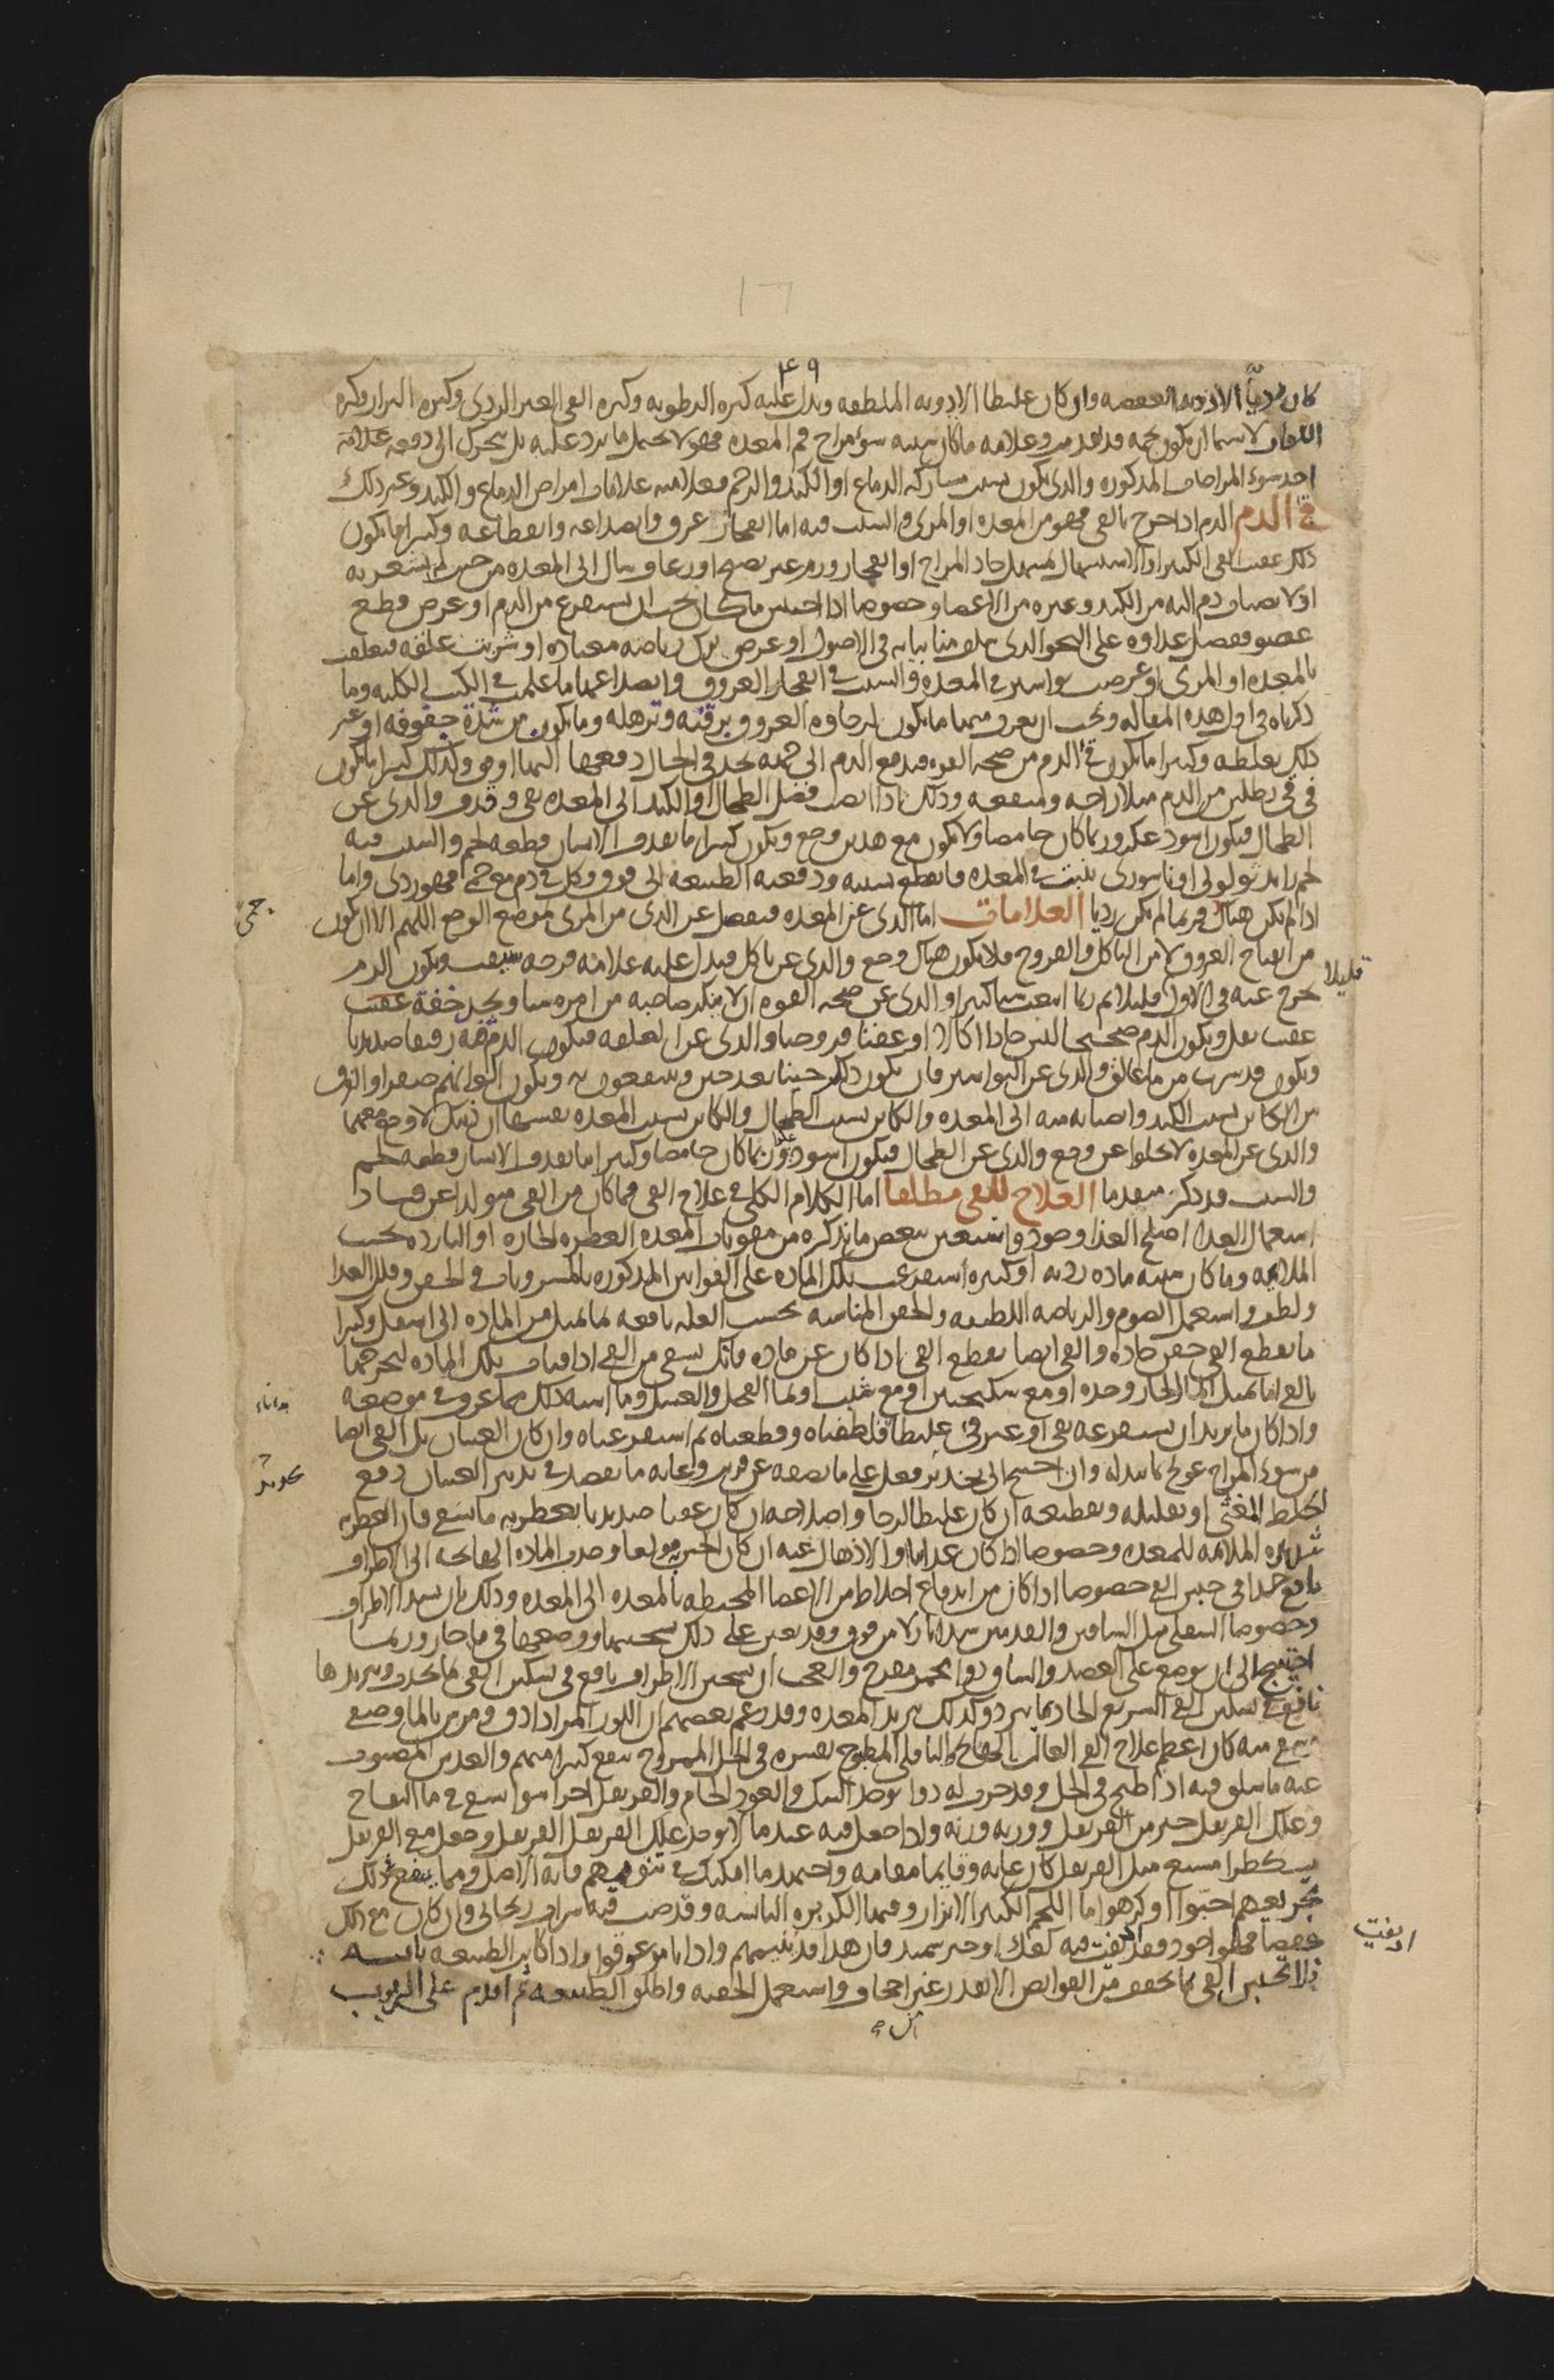 ١٦
٤٩
كان مرديا الادويه العفصه وان كان غليظا الادويه الملطفه ويدل عليه كثره الرطوبه وكثره القى الغير الردى وكثره البراز وكثره
اللعاب لاسيما ان يكون تخمه قد تقدمت وعلامه ما كان سببه سوء مزاج فم المعده فهو لا يحتمل ما يرد عليه بل يتحرك الى دفعه علامه
احد سوء المزاجات المذكوره والذى يكون بسبب مشاركه الدماغ او الكبد والرحم فعلامته علامات امراض الدماغ والكبد وغير ذلك
قى الدم الدم اذا خرج بالقى فهو من المعده او المرى والسبب فيه اما انفجار عرق وانصداعه وانقطاعه وكثيرا ما يكون
ذلك عقيب القى الكثير او الاسهال بمسهل حاد المزاج او انفجار ورم غير نضيج او رعاف سال الى المعده من حيث لم يشعر به
او لانصباب دم اليه من الكبد وغيره من الاعضا وخصوصا اذا احتبس ما كان يجب ان يستفرغ من الدم او عرض قطع
عضو ففضل غداوه على النحو الذى سلف منا بيانه فى الاصول او عرض ترك رياضه معتاده او شربت علقه فتعلقت
بالمعده او المرى او عرضت بواسير فى المعده والسبب فى انفجار العروق وانصداعها ما علمت فى الكتب الكليه وما
ذكرناه فى اول هذه المقاله ويجب ان يعرف منها ما يكون لرخاوه العروق برقته وترهله وما يكون من شدة جفوفه او غير
ذلك بغلظه وكثيرا ما يكون قى الدم من صحه القوه فيدفع الدم الى جهه يجد فى الحال دفعها اليها اوفق وكذلك كثيرا ما يكون
فى قى رطلين من الدم مثلا راحه ومنفعه وذلك اذا انصب فضل الطحال او الكبد الى المعده بقى وقذف والذى عن
الطحال فيكون اسود عكر وربما كان حامضا ولا يكون مع هذين وجع ويكون كثيرا ما يقذف الانسان قطعه لحم والسبب فيه
لحم زايد ثولولى او باسورى ينبت فى المعده فانقطع بسببه ودفعه الطبيعه الى فوق وكل قى دم مع حمى فهو ردى واما
اذا لم يكن هناك فربما لم يكن رديا العلامات اما الذى عن المعده فيفصل عن الذى من المرى موضع الوجع اللهم الا ان يكون
حمى
من انفتاح العروق لا من التاكل والقروح فلا يكون هناك وجع والذى عن تاكل فيدل عليه علامه قرحه سبقت ويكون الدم
قليلا
يخرج عنه فى الاول قليلا ثم ربما انبعث شيا كثيرا والذى عن صحه القوه ان لا ينكر صاحبه من امره شيا ويجد خفة عقيب
عقيب ثقل ويكون الدم صحيحا ليس حادا اكالا او عفنا قروحيا والذى عن العلقه فيكون الدم فيه رقيقا صديديا
ويكون قد شرب من ما عالق والذى عن البواسير فان يكون ذلك حينا بعد حين وينتفعون به ويكون الوانهم صفرا والفرق
بين الكاين بسبب الكبد وانصبابه منه الى المعده والكاين بسبب الطحال والكاين بسبب المعده نفسها ان ذينك لا وجع معهما
والذى عن المعده لا يخلوا عن وجع والذى عن الطحال فيكون اسود وربما كان حامضا وكثيرا ما يقذف الانسان قطعه لحم
والسبب قد ذكر متقدما العلاج للقى مطلقا اما الكلام الكلى فى علاج القى فما كان من القى متولدا عن فساد
استعمال الغدا اصلح الغذا وجود واستعين ببعض ما نذكره من مقويات المعده العطره الحاره او البارده بحسب
الملايمه وما كان سببه ماده رديه او كثيره استفرغت تلك الماده على القوانين المذكوره بالمشروبات والحقن وقلل الغدا
ولطف واستعمل الصوم والرياضه اللطيفه والحقن المناسبه بحسب العله نافعه لما تميل من الماده الى اسفل وكثيرا
ما يقطع القى حقن حاده والقى ايضا يقطع القى اذا كان عن ماده فانك تسقى من القى اذا قيات بتلك الماده لتخرجها
بالقى اما بمثل الما الحار وحده او مع سكنجبين او مع شبت او بما الفجل والعسل وما اشبه ذلك مما عرف فى موضعه
واذا كان ما يريد ان يستفرغه بقى او غير قى غليظا فلطفناه وقطعناه ثم استفرغناه وان كان الغثيان بل القى ايضا
من سوء المزاج عولج بما يبدله وان احتيج الى تخدير فعل على ما نصفه عن قريب وغايه ما يقصد فى تدبير الغثيان دفع
الخلط المغثى او تقليله وتقطيعه ان كان غليظا لزجا واصلاحه ان كان عفنا صديديا بعطريه ما يسقى فان العطريه
شديده الملايمه للمعده وخصوصا اذا كان غدايا والاذهال عنه ان كان الحس به مولعا وجذب الماده الهايجه الى الاطراف
نافع جدا فى حبس القى خصوصا اذا كان من اندفاع اخلاط من الاعضا المحيطه بالمعده الى المعده وذلك بان يشد الاطراف
وخصوصا السفلى مثل الساقين والقدمين شدا نازلا من فوق وقد يعين على ذلك تسخينها ووضعها فى ما حار وربما
احتيج الى ان يوضع على العضد والساق دوا محمر مقرح والعجب ان تسخين الاطراف نافع فى تسكين القى بما يجذب وتبريدها
نافع فى تسكين القى السريع الحاد بما يبرد وكذلك تبريد المعده وقد زعم بعضهم ان اللوز المر اذا دق ومرس بالما وصفى
وسقى منه كان اعظم علاج القى الغالب الهايج والباقلى المطبوخ بقشره فى الخل الممزوج ينفع كثيرا منهم والعدس المصبوب
عنه ما سلق فيه اذا طبخ فى الخل وقد جرب له دوا يوخذ السك والعود الخام والقرنفل اجزا سوا يسقى فى ما التفاح
وعلك القرنفل خير من القرنفل وورقه وزنه واذا جعل فيه عندما لا يوجد علك القرنفل القرنفل وجعل مع القرنفل
مثل القرنفل كان غايه وقايما مقامه واجتهد ما امكنك فى تنويمهم فانه الاصل ومما ينفع ذلك
تجريعهم احبوا او كرهوا ما اللحم الكثير الابزار وفيها الكزبره اليابسه وقد صب فيه شراب ريحانى وان كان مع ذلك
عفصا فهو اجود وقد يفت فيه كعك او خبز سميد فان هذا قد ينيمهم واذا ناموا عرقوا واذا كان الطبيعه يابسه
ادىفيت
فلا تحبس القى بما يجفف من القوابض الا بقدر غير اجحاف واستعمل الحقنه واطلق الطبيعه ثم اقدم على الربوب